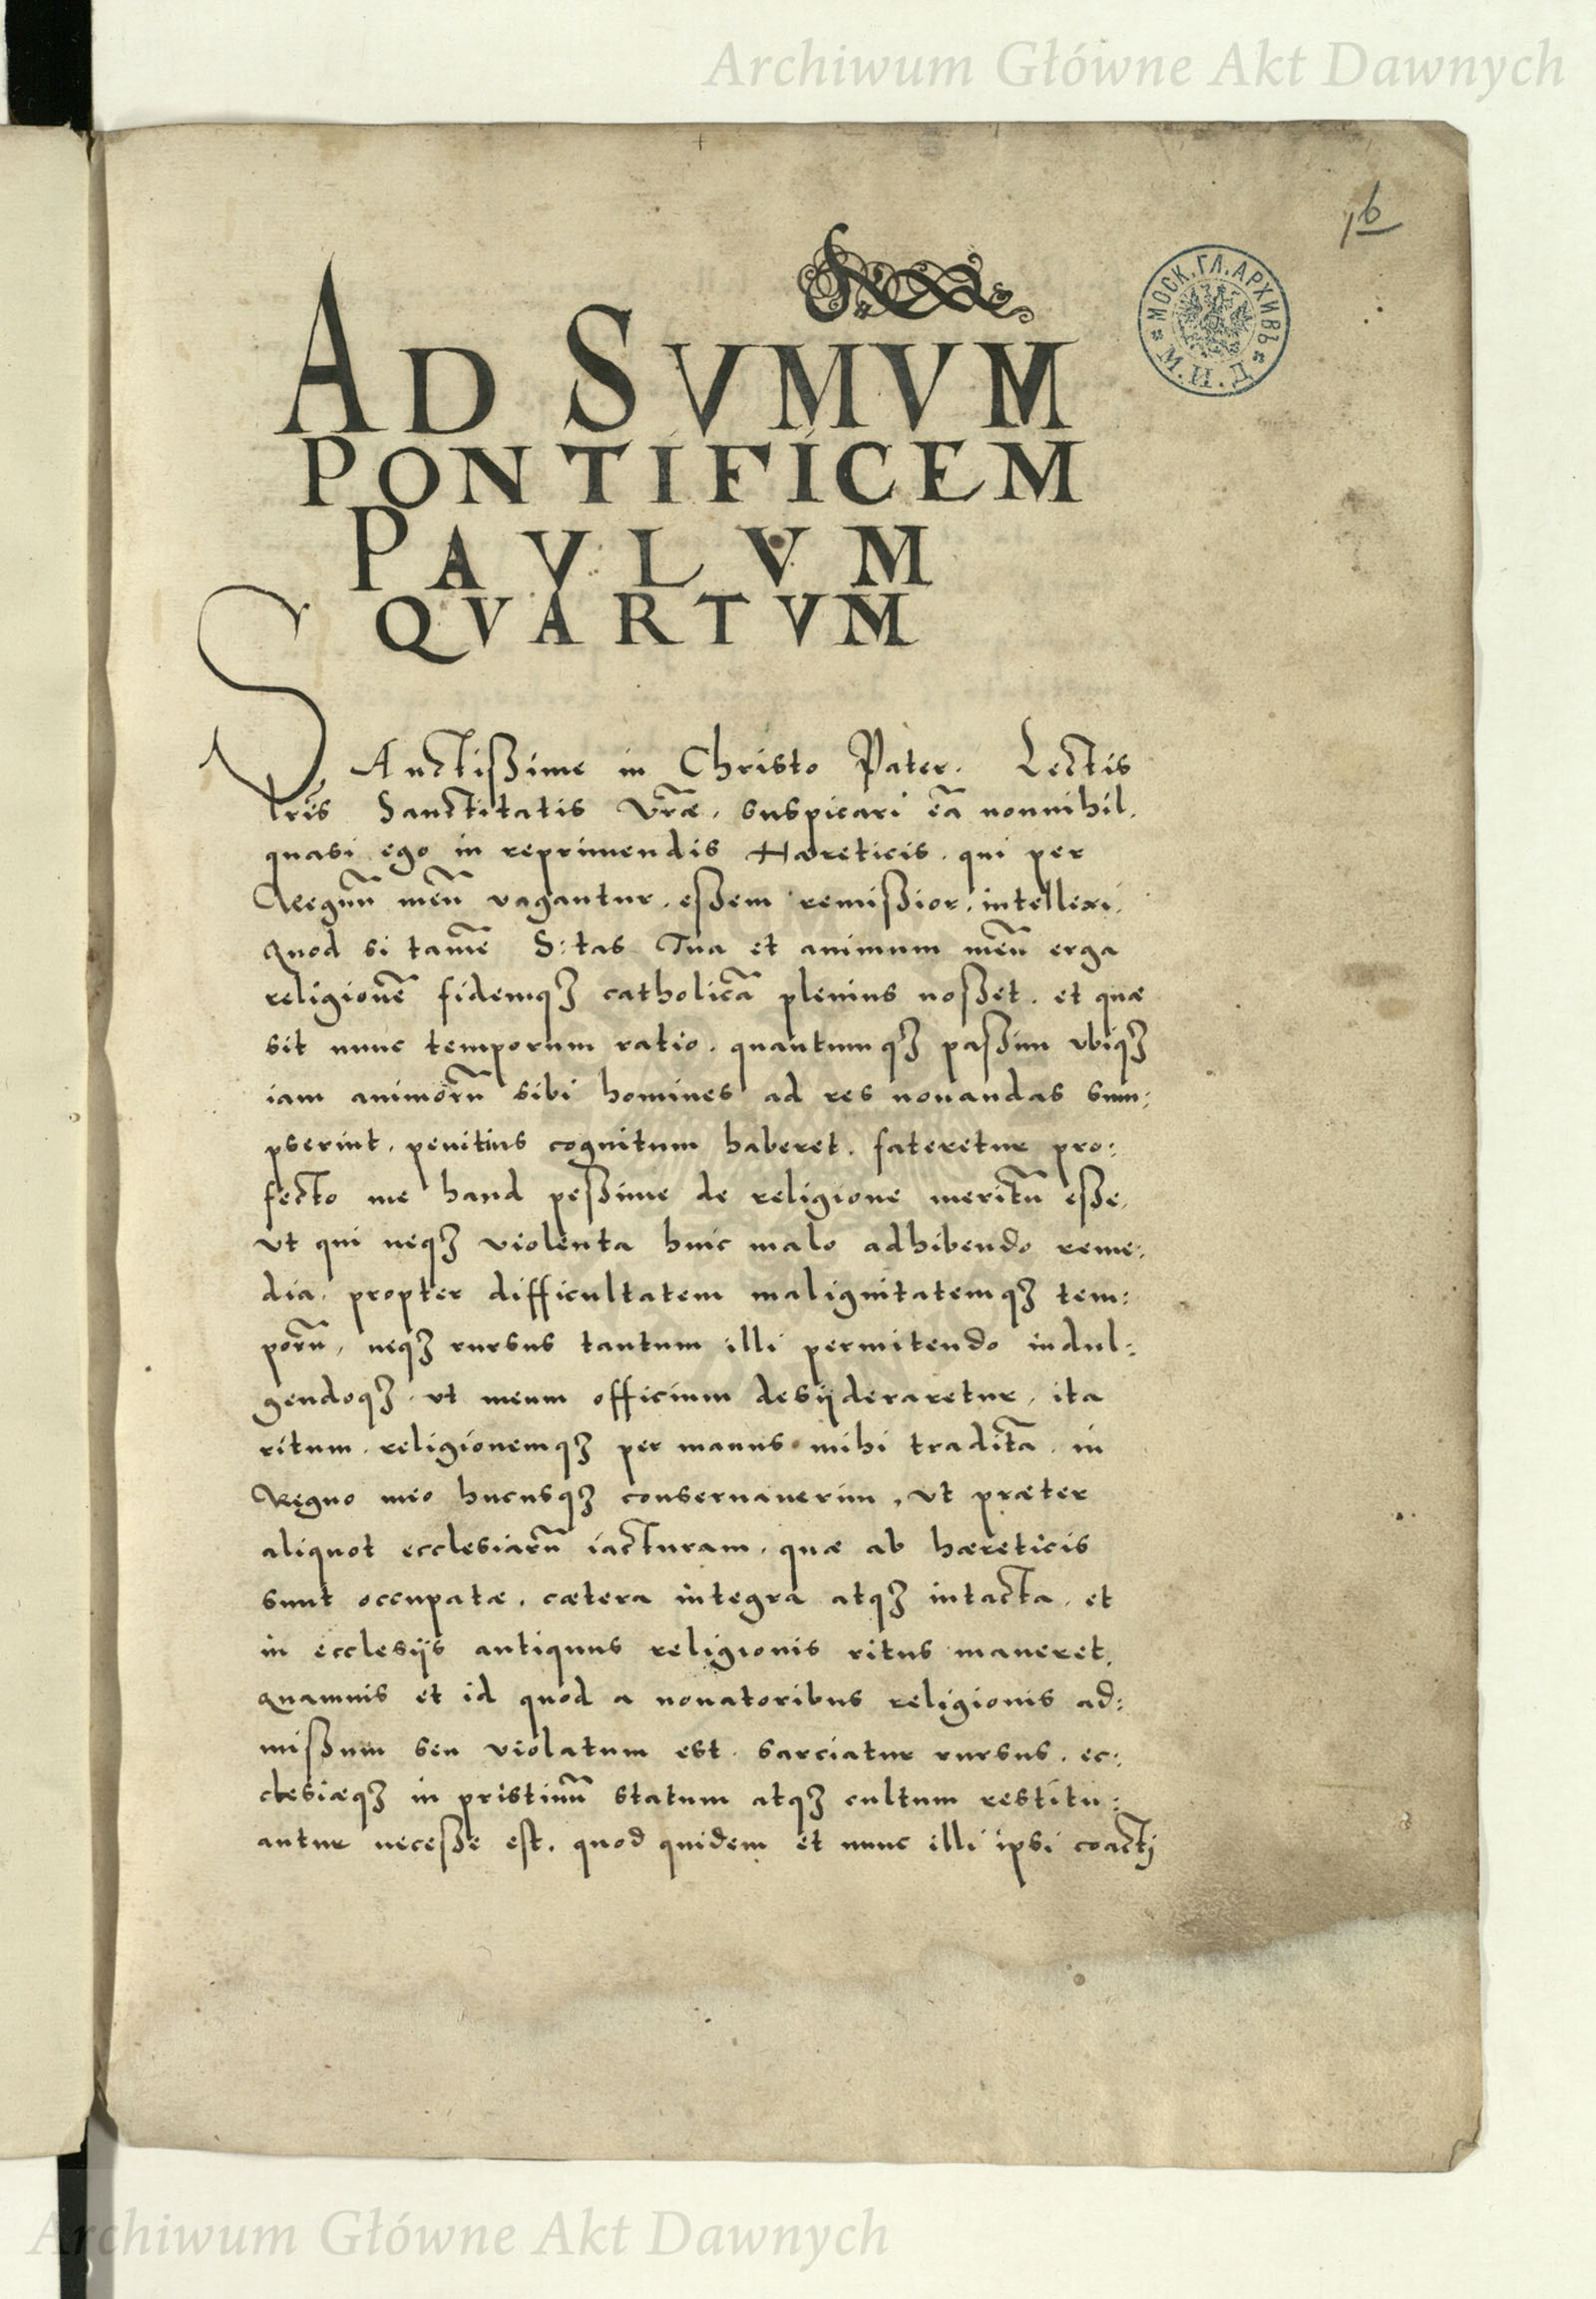 Archiwum Główne Akt Dawnych
16
МОСК. ГЛ. АРХИВЪ * М. И. Д. *
AD SVMVM
PONTIFICEM
PAVLVM
QVARTVM
SAnctißime in Christo Pater. Lectis
lrĩs Sanctitatis Vræ̃, suspicari eã nonnihil,
quasi ego in reprimendis Hæreticis, qui per
Regnũ meũ vagantur, eßem remißior, intellexi,
Quod si tamẽ S:tas Tua et animum meũ erga
religionẽ fidemqꝫ catholicã plenius noßet, et quæ
sit nunc temporum ratio, quantumqꝫ paßim vbiqꝫ
iam animorũ sibi homines ad res nouandas sum:
pserint, penitius cognitum haberet, fateretur pro:
fecto me haud peßime de religione meritũ eße,
vt qui neqꝫ violenta huic malo adhibendo reme:
dia, propter difficultatem malignitatemqꝫ tem:
porũ, neqꝫ rursus tantum illi permitendo indul:
gendoqꝫ, vt meum officium desijderaretur, ita
ritum, religionemqꝫ per manus mihi traditã, in
Regno meo hucusqꝫ conseruauerim, vt præter
aliquot ecclesiarũ iacturam, quæ ab hæreticis
sunt occupatæ, cætera integra atqꝫ intacta, et
in ecclesijs antiquus religionis ritus maneret,
Quamuis et id quod a nouatoribus religionis ad:
mißum seu violatum est, sarciatur rursus, ec:
clesiæqꝫ in pristinũ statum atqꝫ cultum restitu:
antur neceße est, quod quidem et nunc illi ipsi coactj
Archiwum Główne Akt Dawnych